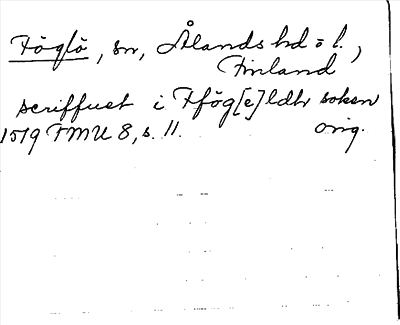 Föglö, sn, Ålands hd o l.,
Finland
scriffuet i Ffög[e]ldh soken
1519 FMU 8, s. 11. orig.